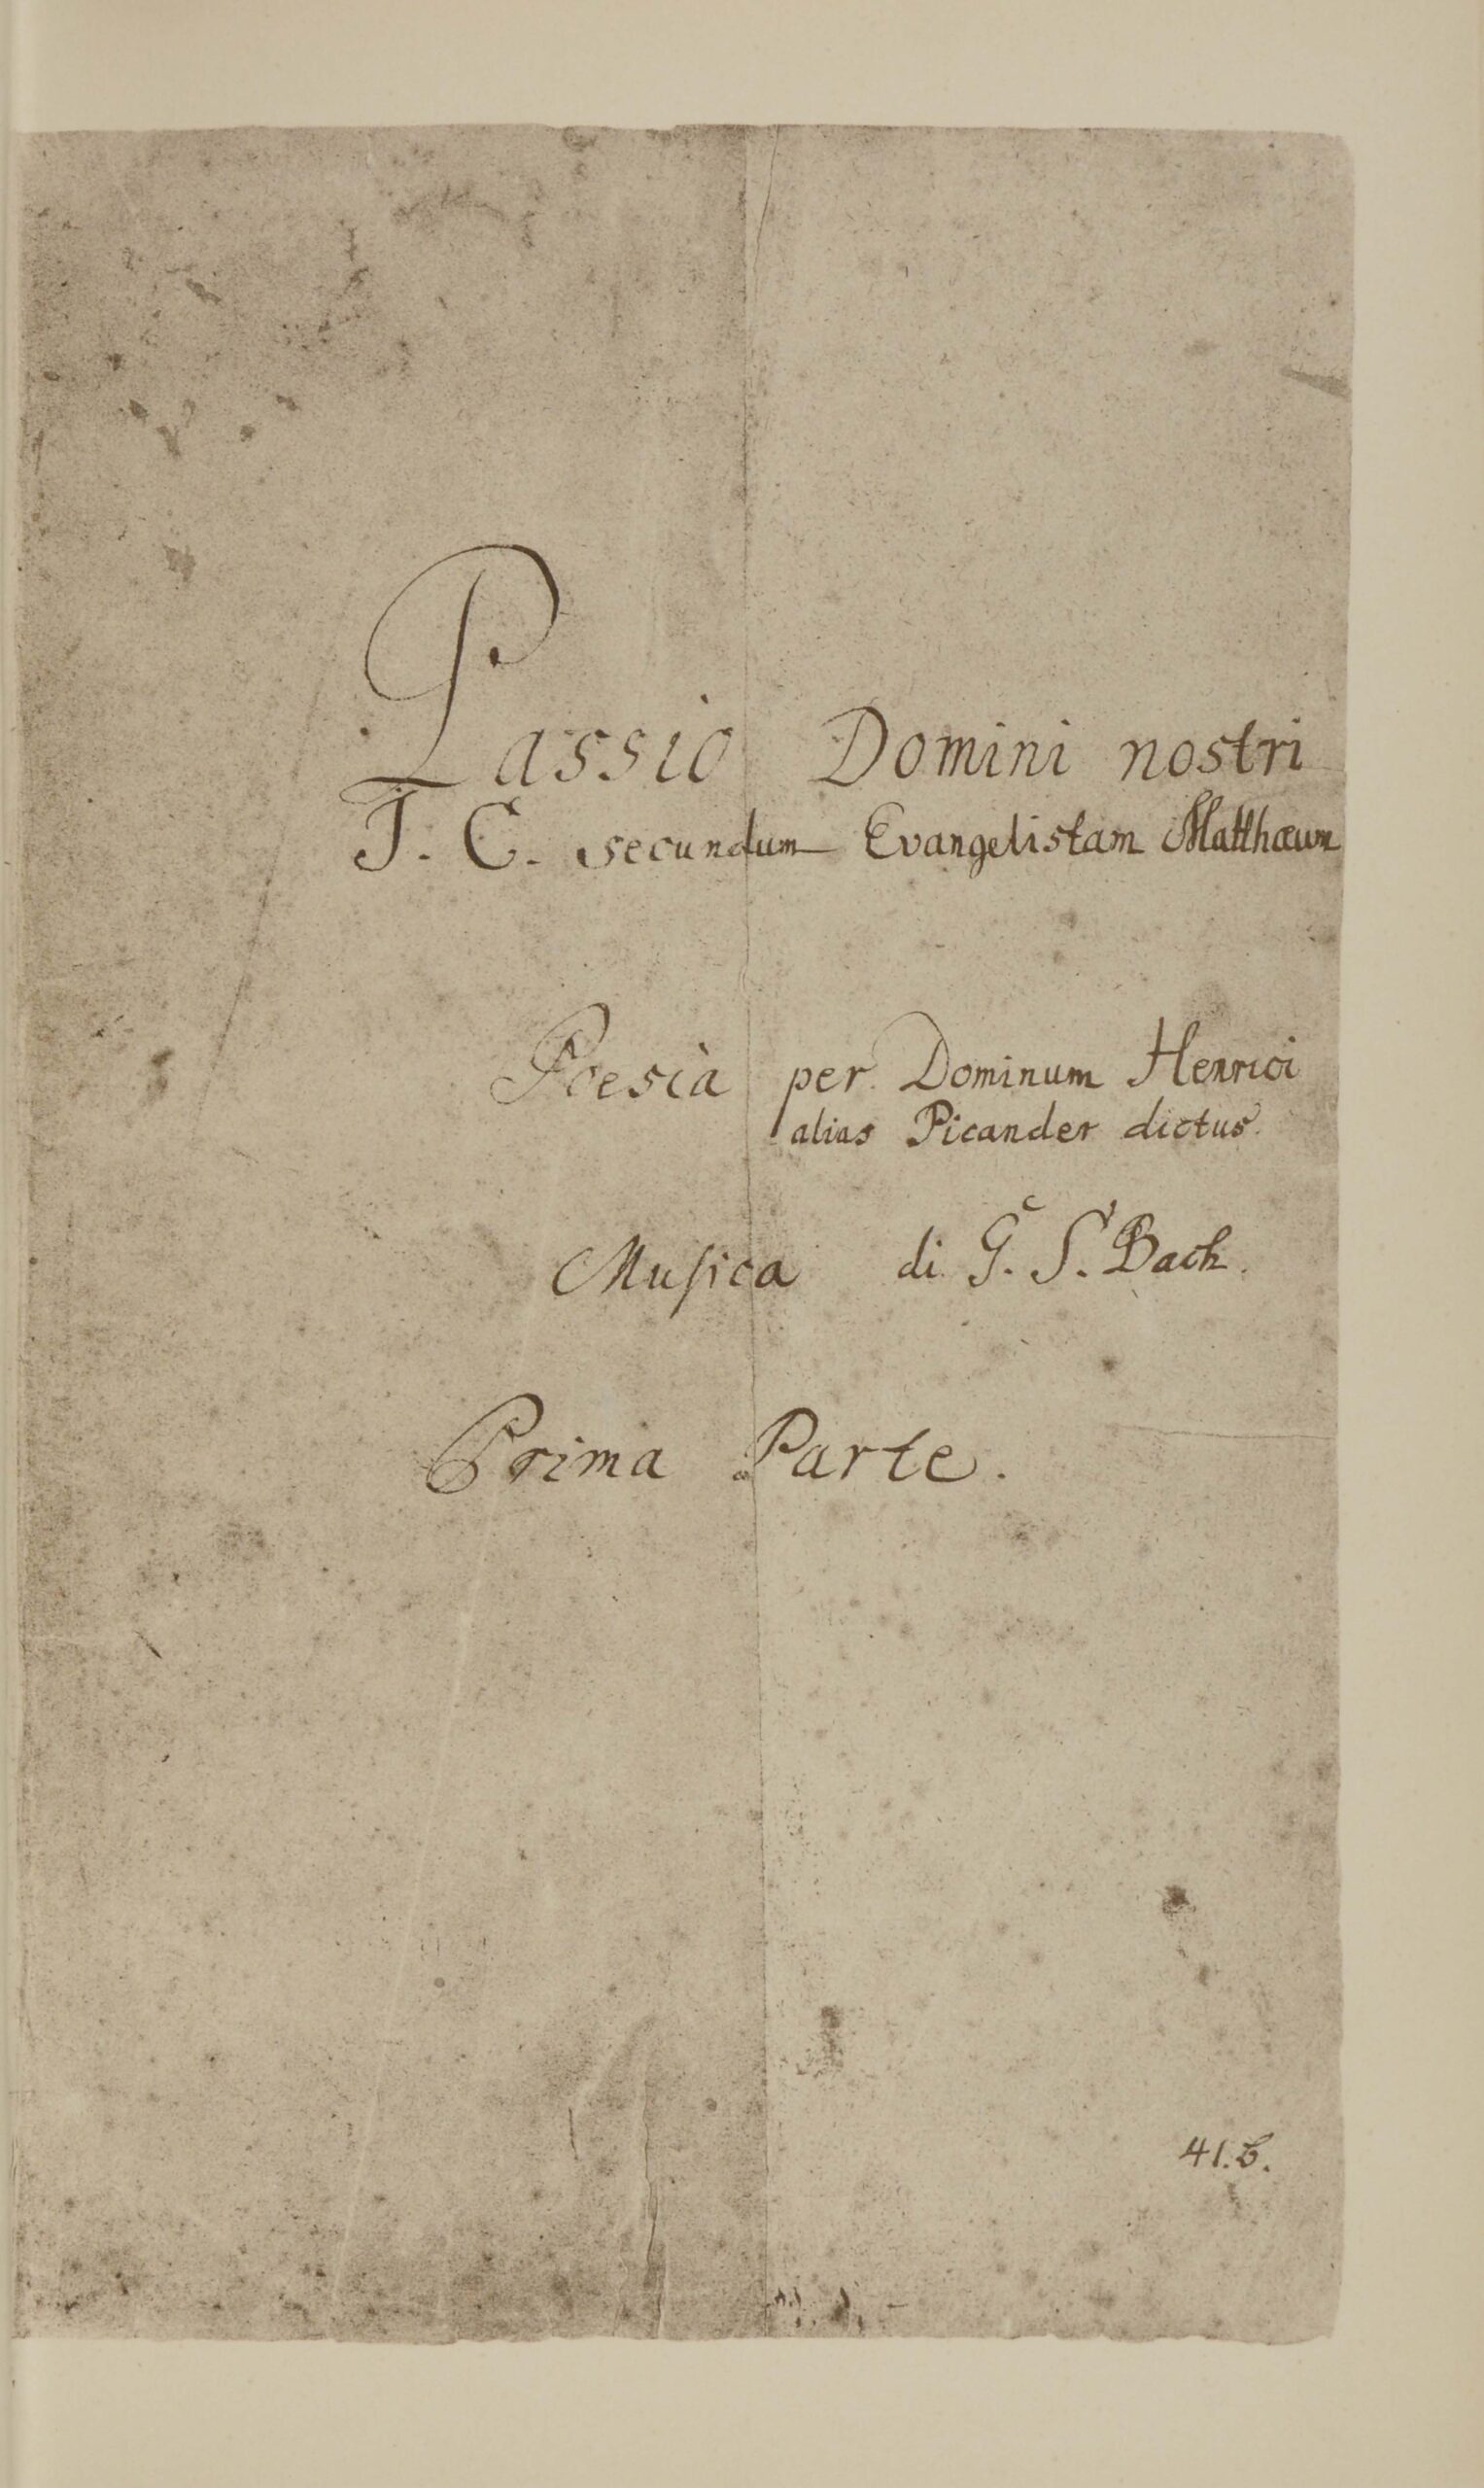 Passio Domini nostri
J. C. secundum Evangelistam Matthæum
Poesia per Dominum Henrici
alias Picander dictus.
Musica di G. S. Bach.
Prima Parte.
41.b.